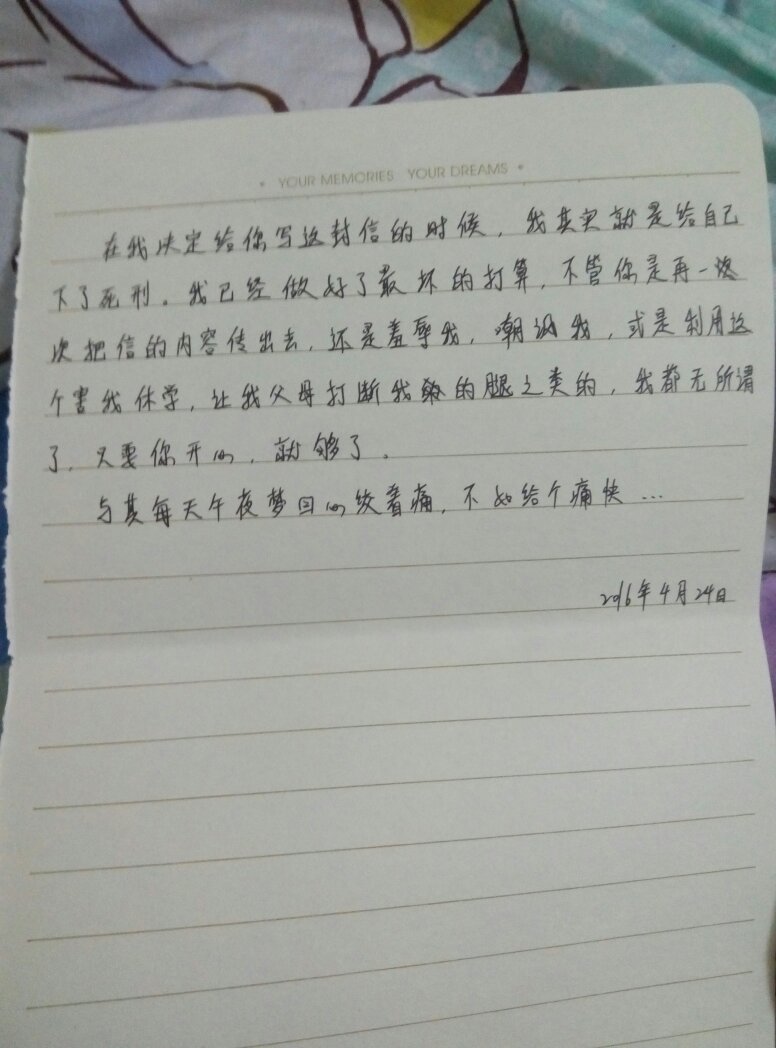 • YOUR MEMORIES YOUR DREAMS •
在我决定给你写这封信的时候，我其实就是给自己
下了死刑。我已经做好了最坏的打算，不管你是再一次
次把信的内容传出去，还是羞辱我，嘲讽我，或是利用这
个害我休学，让我父母打断我的腿之类的，我都无所谓
了，只要你开心，就够了。
与其每天午夜梦回心绞着痛，不如给个痛快…
2016年4月24日